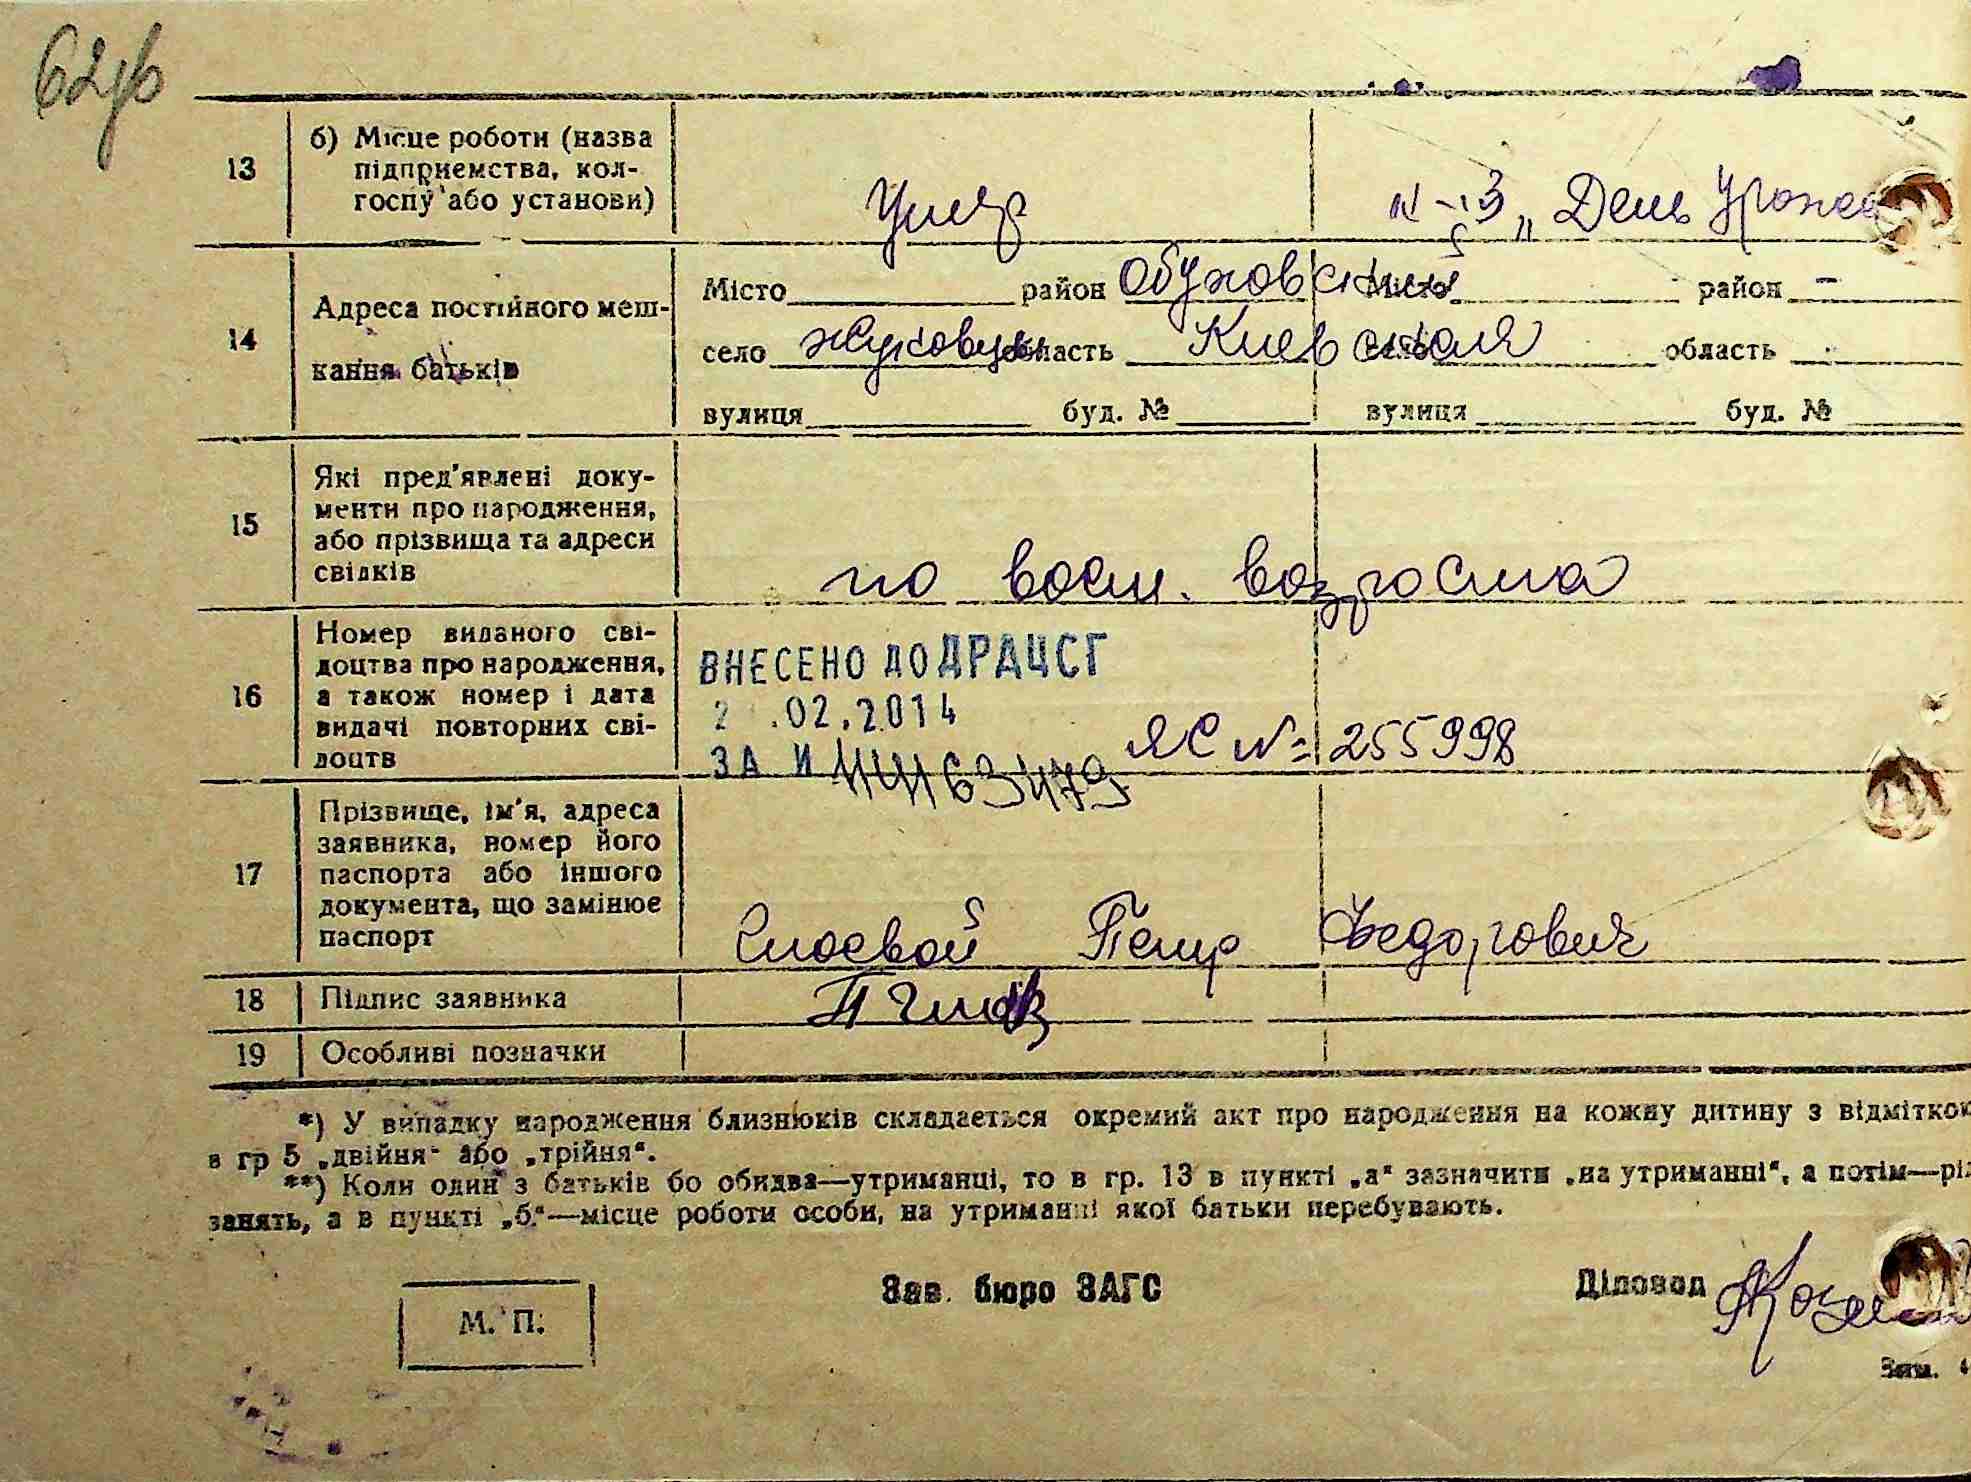 13 б) Місце роботи (назва
підприємства, кол-
госпу або установи)
Умер к-з „День Урожая
14 Адреса постійного меш-
кання батьків
Місто район Обуховский Місто район -
село Жуковцы область Киевская село область -
вулиця буд. № вулиця буд. №
15 Які пред'явлені доку-
менти про народження,
або прізвища та адреси
свідків
по восст. возраста
16 Номер виданого сві-
доцтва про народження,
а також номер і дата
видачі повторних сві-
доцтв
ВНЕСЕНО ДО ДРАЦСГ
2 .02.2014
ЗА №
ЯС № 255998
17 Прізвище, ім'я, адреса
заявника, номер його
паспорта або іншого
документа, що замінює
паспорт
Петр Федорович
18 Підпис заявника
19 Особливі позначки
*) У випадку народження близнюків складається окремий акт про народження на кожну дитину з відміткою
в гр 5 „двійня“ або „трійня“.
**) Коли один з батьків бо обидва—утриманці, то в гр. 13 в пункті „а“ зазначити „на утриманні“, а потім—рід
занять, а в пункті „б“—місце роботи особи, на утриманні якої батьки перебувають.
Зав. бюро ЗАГС Діловод
М. П.
Зам.